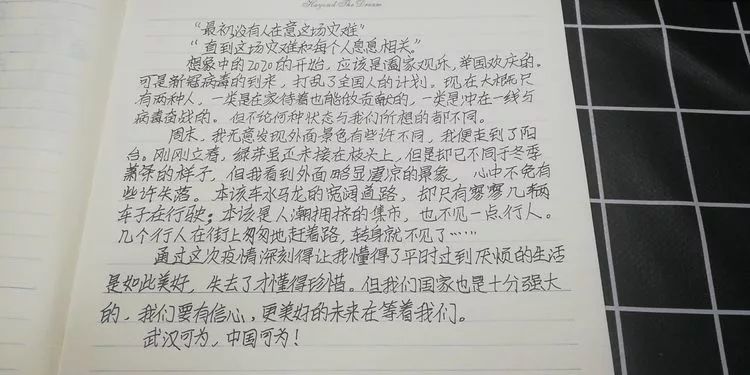 Beyond The Dream
“最初没有人在意这场灾难”
“直到这场灾难和每个人息息相关。”
想象中的2020的开始，应该是阖家观乐，举国欢庆的。
可是新冠病毒的到来，打乱了全国人的计划。现在大概只
有两种人，一类是在家待着也能做贡献的，一类是冲在一线与
病毒奋战的。但不论何种状态与我们所想的都不同。
周末，我无意发现外面景色有些许不同，我便走到了阳
台。刚刚立春，绿芽虽还未接在枝头上，但是却已不同于冬季
萧条的样子，但我看到外面略显凄凉的景象，心中不免有
些许失落。本该车水马龙的宽阔道路，却只有寥寥几辆
车子在行驶；本该是人潮拥挤的集市，也不见一点行人。
几个行人在街上匆匆地赶着路，转身就不见了……
通过这次疫情深刻得让我懂得了平时过到厌烦的生活
是如此美好，失去了才懂得珍惜。但我们国家也是十分强大
的，我们要有信心，更美好的未来在等着我们。
武汉可为，中国可为！